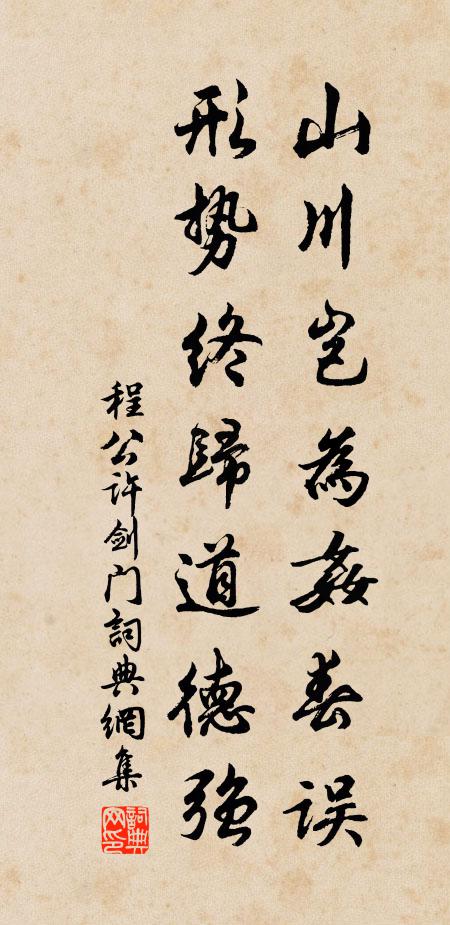 山川岂為姦春误
形势终歸道德强
程公许剑门詞典網集
詞典网印